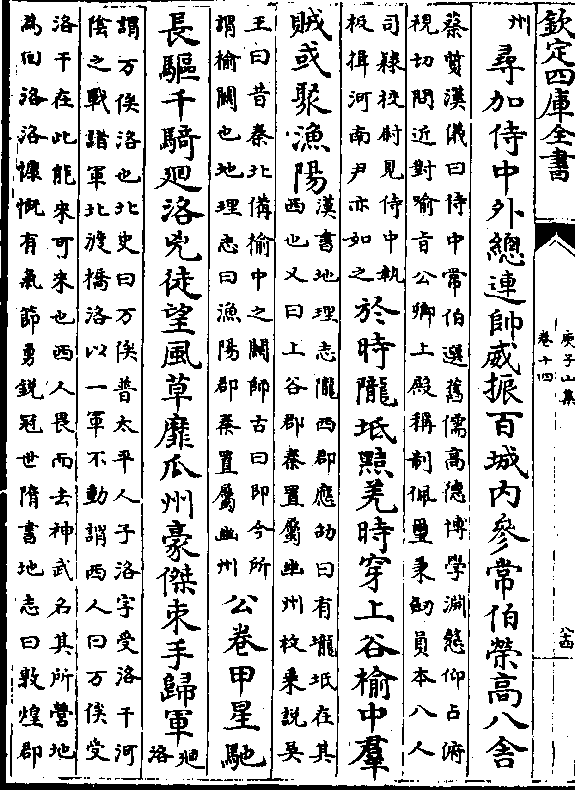 欽定四庫全書
庾子山集
卷十四
州
尋加侍中外總連帥威振百城内參常伯榮高八舍
蔡質漢儀曰侍中常伯選舊儒高德博學淵懿仰占俯
視切問近對喻旨公卿上殿稱制佩璽秉劒員本八人
司隸校尉見侍中執
板揖河南尹亦如之
於時隴坻點羌時穿上谷榆中羣
賊或聚漁陽
漢書地理志隴西郡應劭曰有隴坻在其
西也又曰上谷郡秦置屬幽州枚乘説吳
王曰昔秦北備榆中之關師古曰即今所
謂榆關也地理志曰漁陽郡秦置屬幽州
公卷甲星馳
長驅千騎廻洛兇徒望風草靡瓜州豪傑束手歸軍
廻
洛
謂万俟洛也北史曰万俟普太平人子洛字受洛干河
陰之戰諸軍北渡橋洛以一軍不動謂西人曰万俟受
洛干在此能來可來也西人畏而去神武名其所營地
為回洛洛慷慨有氣節勇鋭冠世隋書地志曰敦煌郡